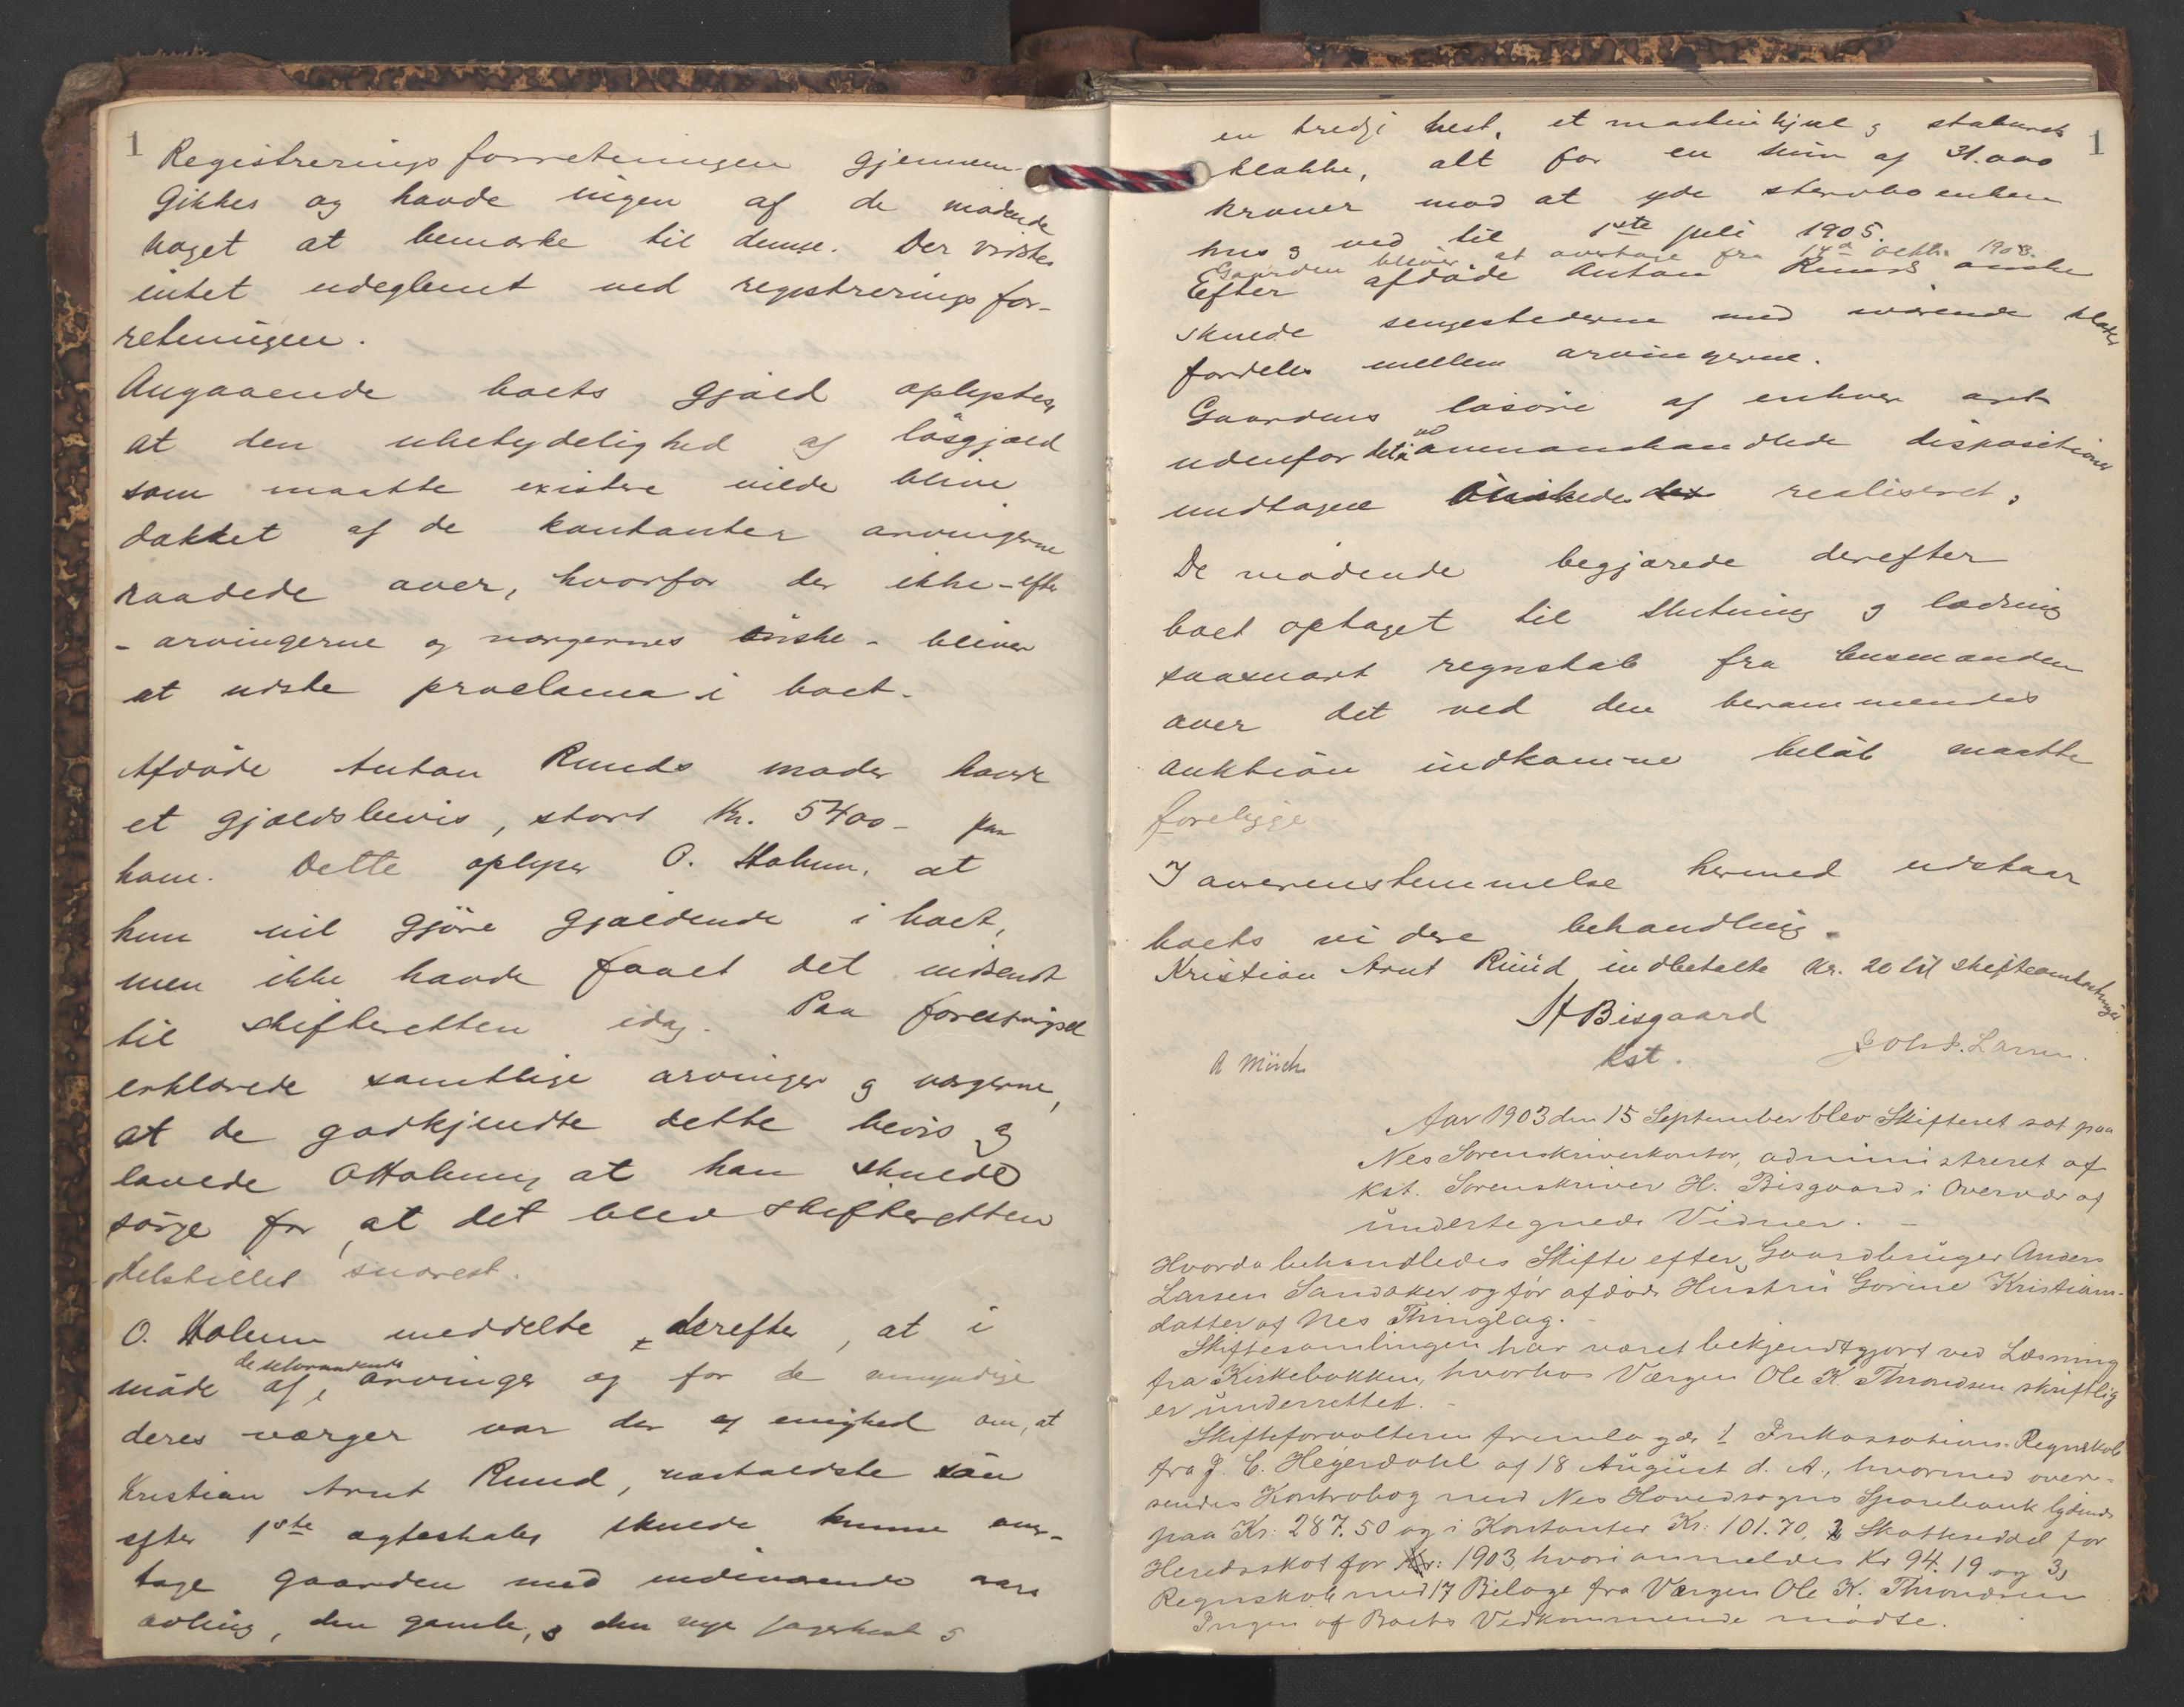 1
Registreringsforretningen gjennem-
gikkes og havde ingen af de mødende
noget at bemærke til denne. Der vidstes
intet udeglemt ved registreringsfor-
retningen.
Angaaende boets gjæld oplystes,
at den ubetydelighed af løsgjæld
som maatte existere vilde blive
dækket af de kontanter arvingerne
raadede over, hvorfor der ikke - efter
- arvingerne og værgernes ønske - bliver
at udste proclama i boet.
Afdøde Anton Ruuds moder havde
et gjældsbevis, stort Kr. 5400 - paa
ham. Dette oplyser O. Holum, at
hun vil gjøre gjældende i boet,
men ikke havde faaet det indsendt
til skifteretten idag. Paa forespørgsel
erklærede samtlige arvinger og værgerne,
at de godkjendte dette bevis og
lovede O Holum, at han skulde
sørge for, at det blev skifteretten
tilstillet snarest.
O. Holum meddelte derefter, at i
møde af de arvinger og for de umyndige
deres værger var der enighed om, at
Kristian Arnt Ruud, næstældste søn
efter 1ste ægteskab, skulde kunne over-
tage gaarden med indeværende aars
avling, den gamle, den nye
1
en tredje hest, et maskinhjul og stabursk
klokke, alt for en sum af 31.000
kroner mod at yde stervboenken
hus og ved til 1ste juli 1905.
Gaarden bliver at overtage fra 14de oktbr. 1903.
Efter afdøde Anton Ruuds ønske
skulde sengestederne med værende klæder
fordeles mellem arvingerne.
Gaardens løsøre af enhver art
udenfor det dispositioner
undtagne ønskedes realiseret.
De mødende begjærede derefter
boet optaget til slutning og lodning
saasnart regnskab fra lensmanden
over det ved den berammendes
auktion indkomne beløb maatte
foreligge
I overensstemmelse hermed udstaar
boets videre behandling.
Kristian Arnt Ruud indbetalte Kr. 20 til skifteomkostninger.
H Bisgaard
kst.
A Mürch
Joh. L. Larsen.
Aar 1903 den 15 September blev Skifteret sat paa
Nes Sorenskriverkontor, administreret af
kst. Sorenskriver H. Bisgaard i Overvær af
undertegnede Vidner. -
Hvorda behandledes Skifte efter Gaardbruger Anders
Larsen Sandaker og før afdøde Hustru Gorine Kristians-
datter af Nes Thinglag. -
Skiftesamlingen har været bekjendtgjort ved Læsning
fra Kirkebakken, hvorhos Værgen Ole K. Throndsen skriftlig
er underrettet. -
Skifteforvalteren fremlagde 1 Inkassations-Regnskab
fra J. C. Hegerdahl af 18 August d. A., hvormed over-
sendes Kontrabog med Nes Hovedsogns Sparebank lydende
paa Kr: 287.50 og i Kontanter Kr: 101.70, 2 Skatteseddel for
Heredsskat for 1903 hvori anmeldes Kr 94.19 og 3,
Regnskab med 17 Bilage fra Værgen Ole K. Throndsen
Ingen af Boets Vedkommende mødte.